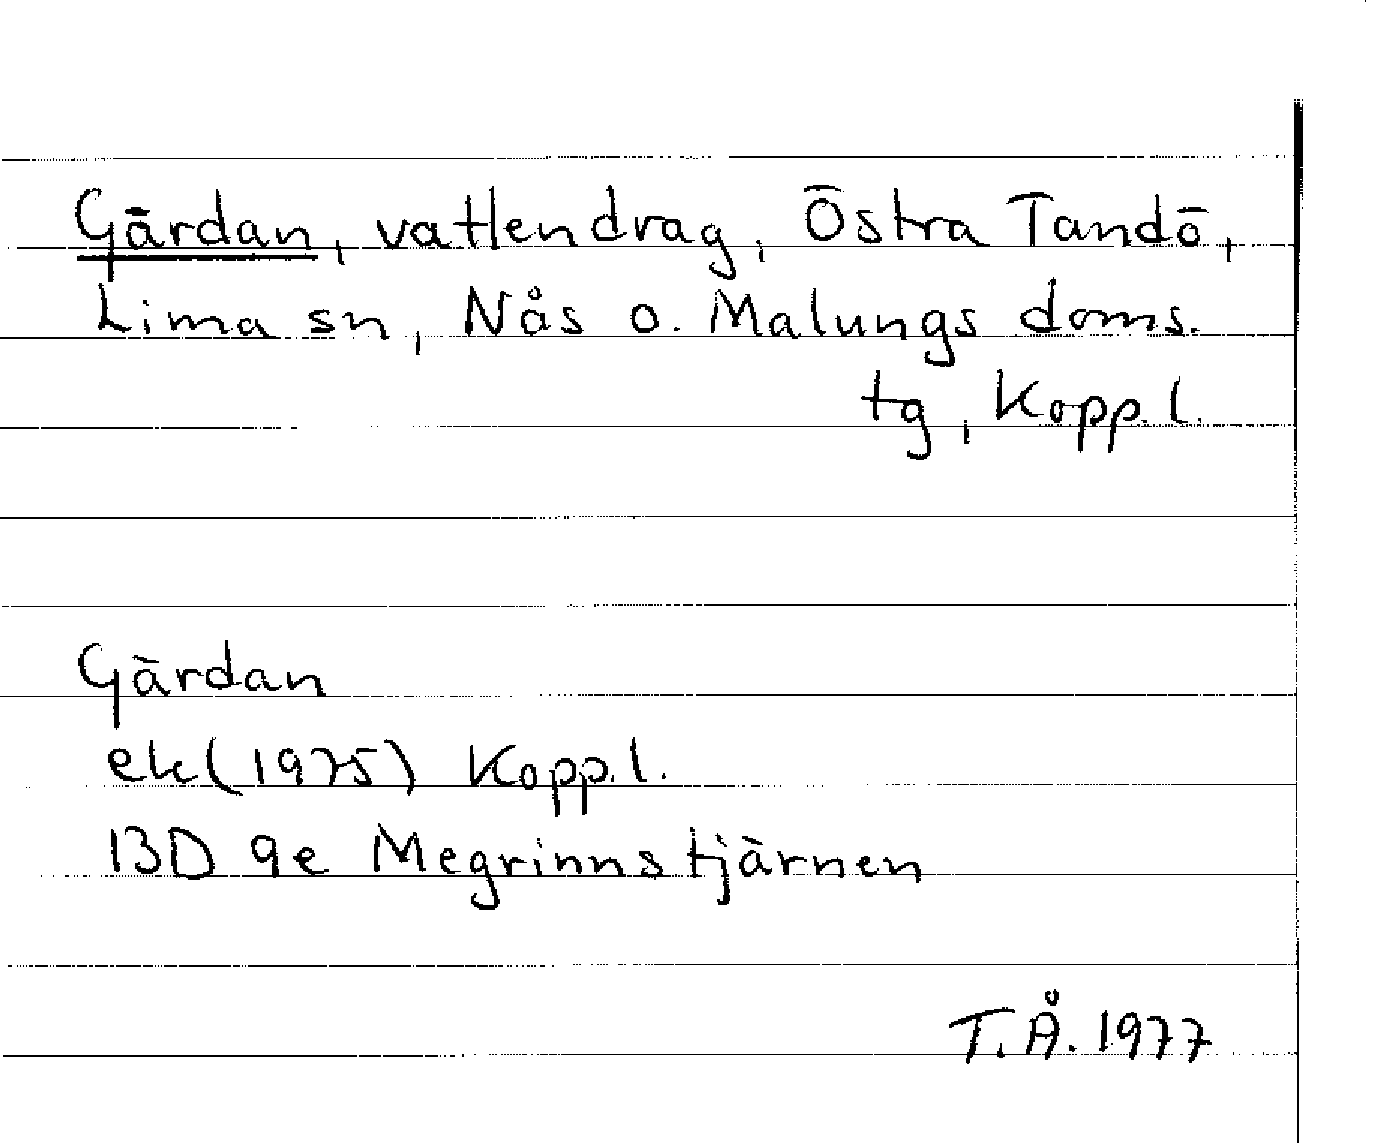 Gärdan, vattendrag, Östra Tandö,
Lima sn, Nås o. Malungs doms.
tg, Kopp.l.
Gärdan
ek(1975) Kopp.l.
13D 9e Megrinnstjärnen
T.Å. 1977